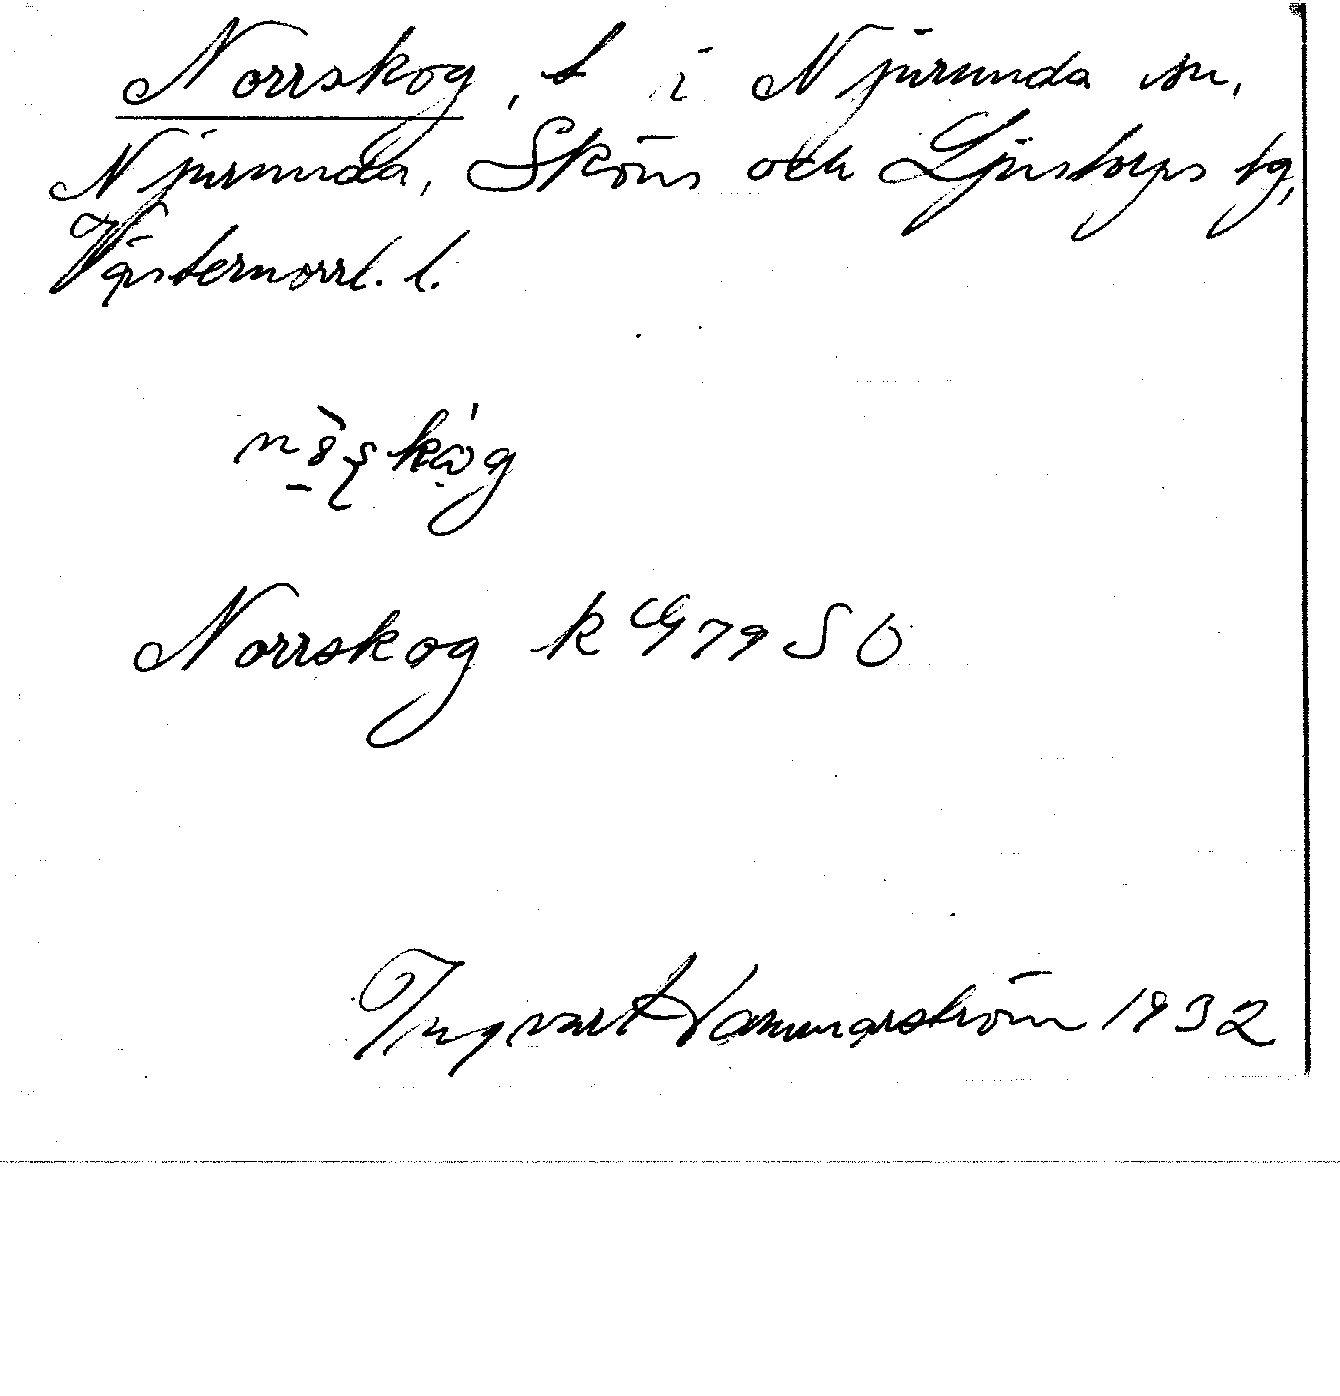 Norrskog, t i Njurunda sn,
Njurunda, Sköns och Ljustorps tg,
Västernorrl. l.
Norrskog k G 79 S Ö
Ingvart Hammarström 1932